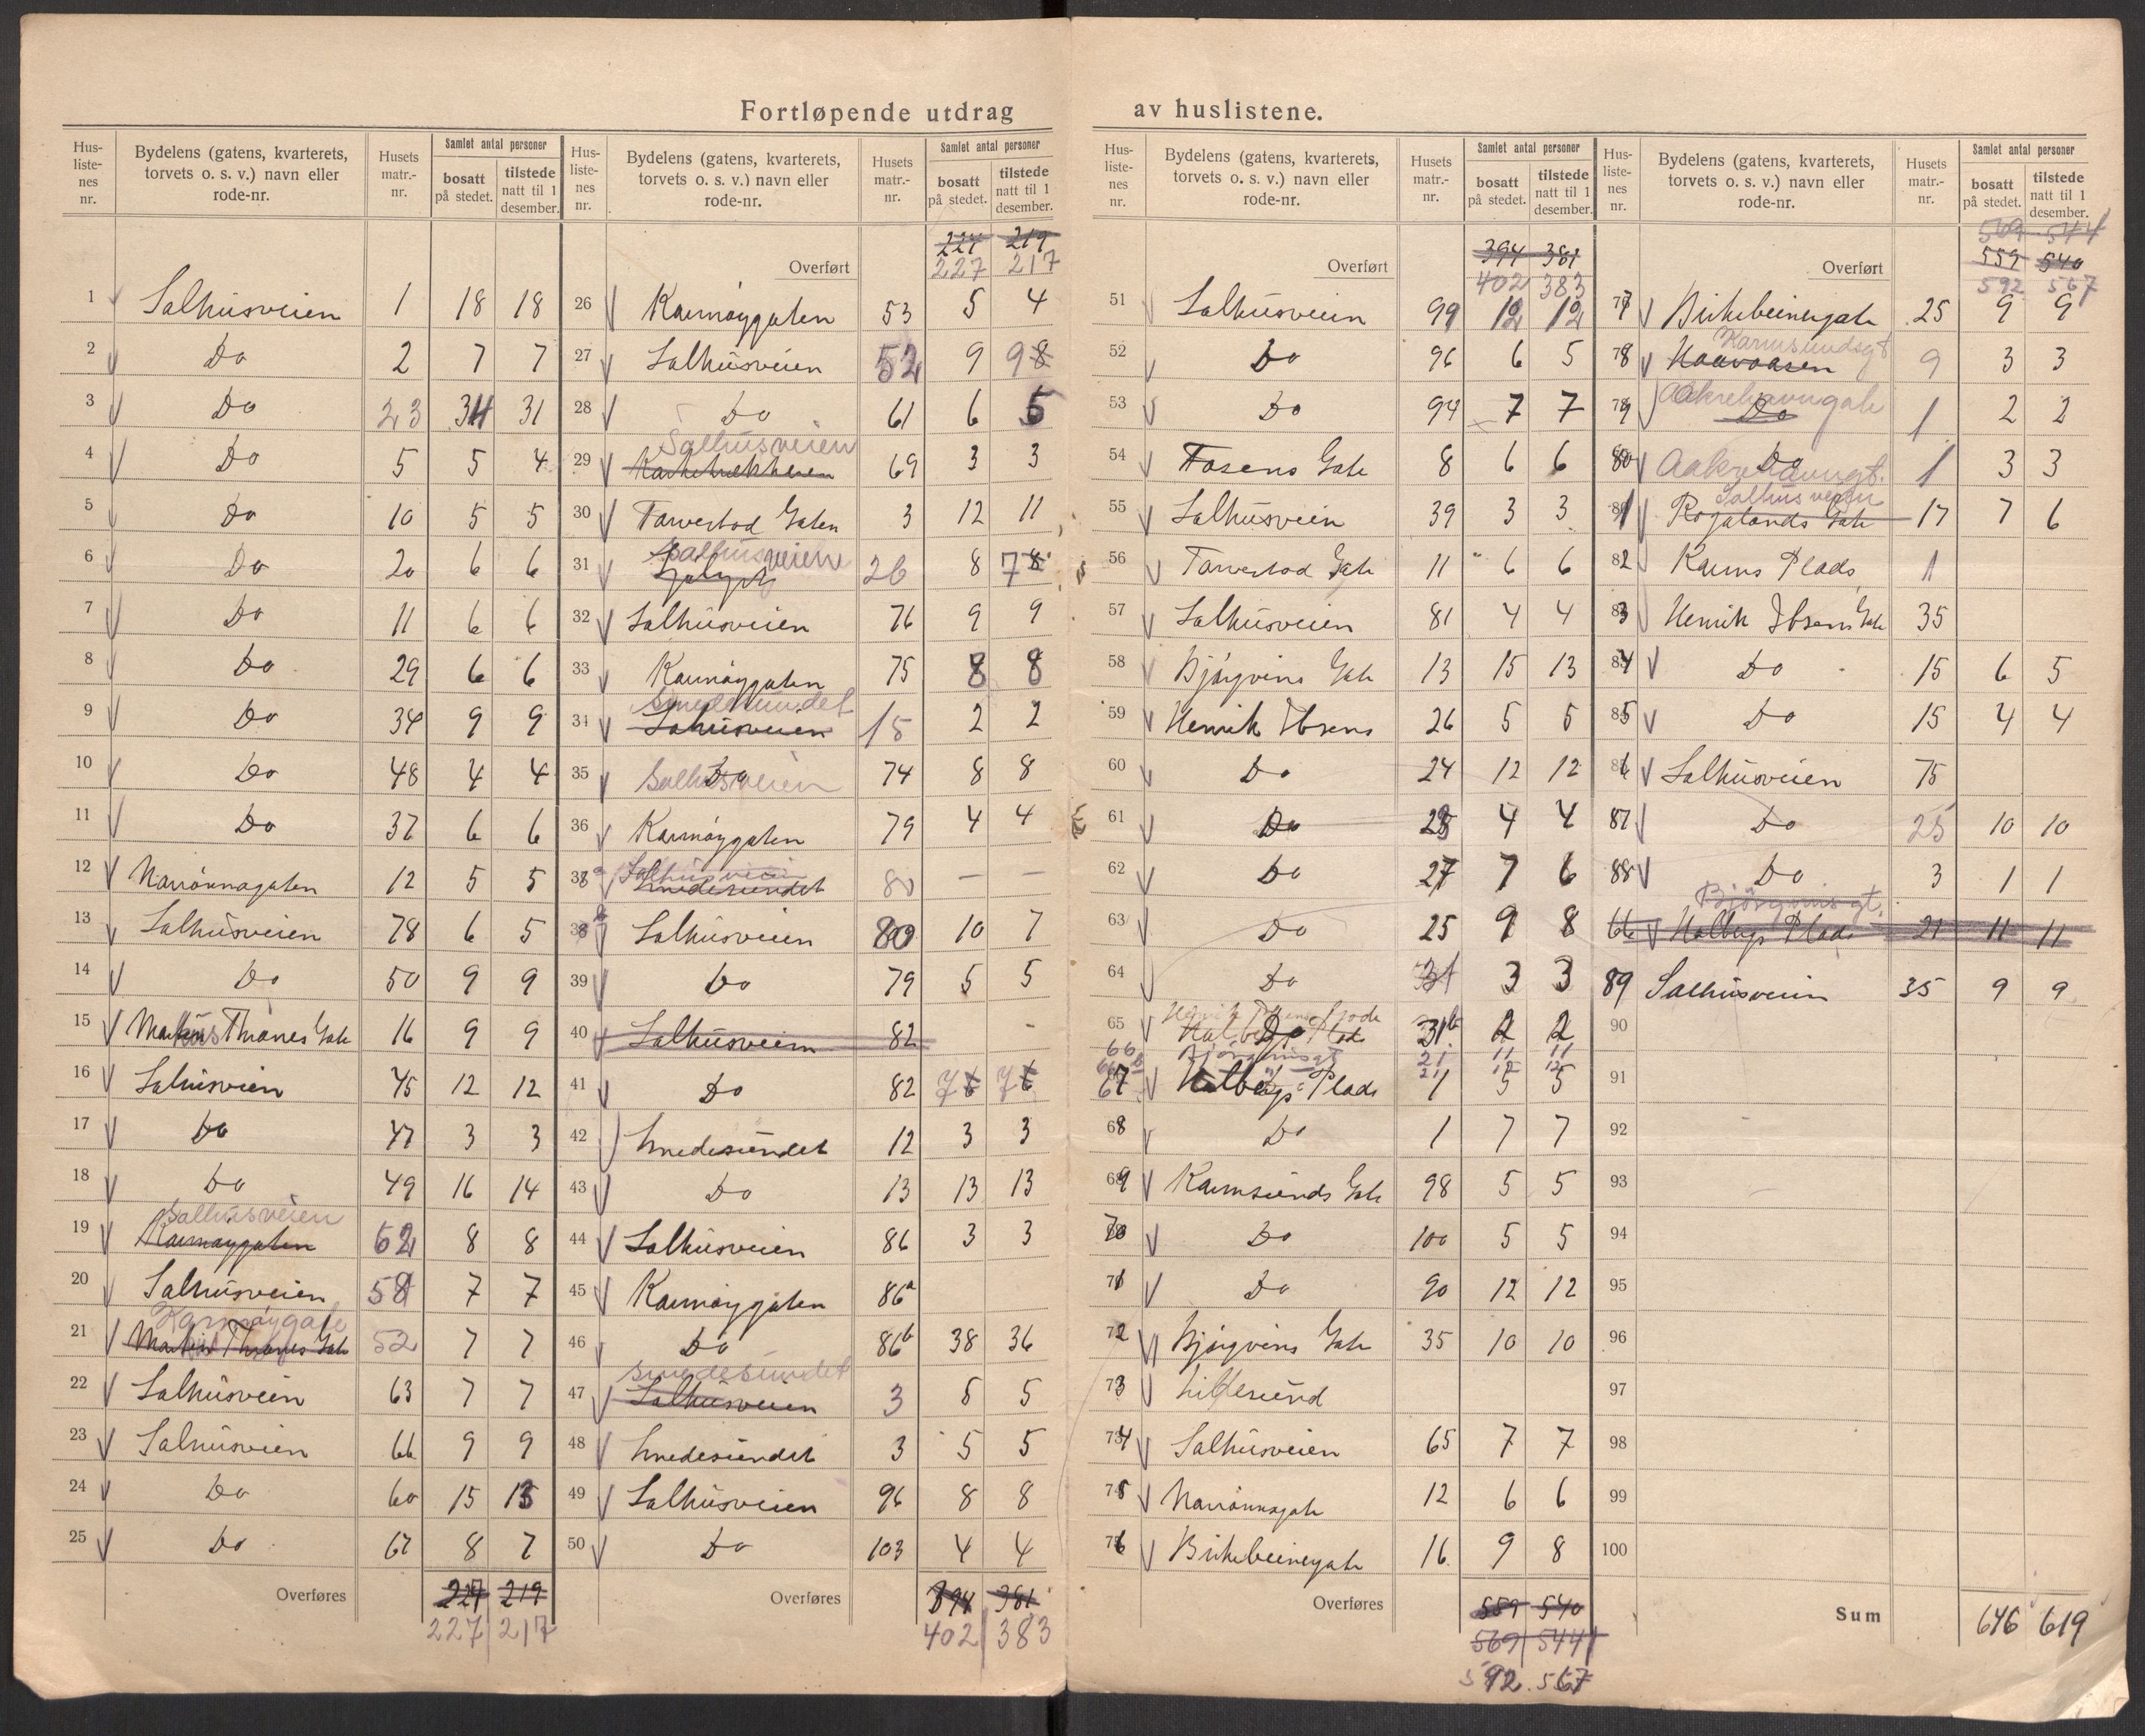 Fortløpende utdrag av huslistene.
Hus-listenes nr. | Bydelens (gatens, kvarterets, torvets o. s. v.) navn eller rode-nr. | Husets matr.-nr. | Samlet antal personer: bosatt på stedet. | tilstede natt til 1 desember.
1 Salhusveien 1 18 18
2 Do 2 7 7
3 Do 23 31 31
4 Do 5 5 4
5 Do 10 5 5
6 Do 20 6 6
7 Do 11 6 6
8 Do 29 6 6
9 Do 34 9 9
10 Do 48 4 4
11 Do 37 6 6
12 Norrönnagaten 12 5 5
13 Salhusveien 78 6 5
14 Do 50 9 9
15 Markus Thranes Gate 16 9 9
16 Salhusveien 45 12 12
17 Do 47 3 3
18 Do 49 16 14
Salhusveien
19 Karmöygaten 62 8 8
20 Salhusveien 58 7 7
Karmöygate
21 Markus Thranes Gate 52 7 7
22 Salhusveien 63 7 7
23 Salhusveien 66 9 9
24 Do 60 15 13
25 Do 67 8 7
Overføres 227 219
227 217
Hus-listenes nr. | Bydelens (gatens, kvarterets, torvets o. s. v.) navn eller rode-nr. | Husets matr.-nr. | Samlet antal personer: bosatt på stedet. | tilstede natt til 1 desember.
227 219
Overført 227 217
26 Karmöygaten 53 5 4
27 Salhusveien 52 9 9 8
28 Do 61 6 5
Salhusveien
29 69 3 3
30 Torvestad Gaten 3 12 11
Salhusveien
31 26 8 7 8
32 Salhusveien 76 9 9
33 Karmöygaten 75 8 8
Smedesundet
34 Salhusveien 15 2 2
35 Do Salhusveien 74 8 8
36 Karmöygaten 79 4 4
Salhusveien
37 a Smedesundet 80 — —
38 Salhusveien 80 10 7
39 Do 79 5 5
40 Salhusveien 82 -
41 Do 82 7 6 7 6
42 Smedesundet 12 3 3
43 Do 13 13 13
44 Salhusveien 86 3 3
45 Karmöygaten 86a
46 Do 86b 38 36
Smedesundet
47 Salhusveien 3 5 5
48 Smedesundet 3 5 5
49 Salhusveien 96 8 8
50 Do 103 4 4
Overføres 394 381
402 383
Hus-listenes nr. | Bydelens (gatens, kvarterets, torvets o. s. v.) navn eller rode-nr. | Husets matr.-nr. | Samlet antal personer: bosatt på stedet. | tilstede natt til 1 desember.
394 381
Overført 402 383
51 Salhusveien 99 12 12
52 Do 96 6 5
53 Do 94 7 7
54 Fosens Gate 8 6 6
55 Salhusveien 39 3 3
56 Torvestad Gate 11 6 6
57 Salhusveien 81 4 4
58 Björgvins Gate 13 15 13
59 Henrik Ibsens 26 5 5
60 Do 24 12 12
61 Do 28 4 4
62 Do 27 7 6
63 Do 25 9 8
64 Do 31 3 3
65 Holbergs Plads Do 31b 2 2
66 Björgvinsgt 21 11 11
66b 21 12 12
67 Holbergs Plads 1 5 5
68 Do 1 7 7
69 Karmsunds Gate 98 5 5
70 Do 100 5 5
71 Do 90 12 12
72 Björgvins Gate 35 10 10
73 Lillesund
74 Salhusveien 65 7 7
75 Norrönnagate 12 6 6
76 Birkebeinergate 16 9 8
Overføres 559 540
569 544
592 567
Hus-listenes nr. | Bydelens (gatens, kvarterets, torvets o. s. v.) navn eller rode-nr. | Husets matr.-nr. | Samlet antal personer: bosatt på stedet. | tilstede natt til 1 desember.
569 544
Overført 559 540
592 567
77 Birkebeinergate 25 9 9
Karmsundsgt
78 Haavaasen 9 3 3
Aakrehavngate
79 Do 1 2 2
80 Do Aakrehavngt. 1 3 3
Salhusveien
81 Rogalands Gate 17 7 6
82 Karms Plads 1
83 Henrik Ibsens Gate 35
84 Do 15 6 5
85 Do 15 4 4
86 Salhusveien 75
87 Do 25 10 10
88 Do 3 1 1
Björgvinsgt.
66 Holbergs Plads 21 11 11
89 Salhusveien 35 9 9
90
91
92
93
94
95
96
97
98
99
100
Sum 646 619